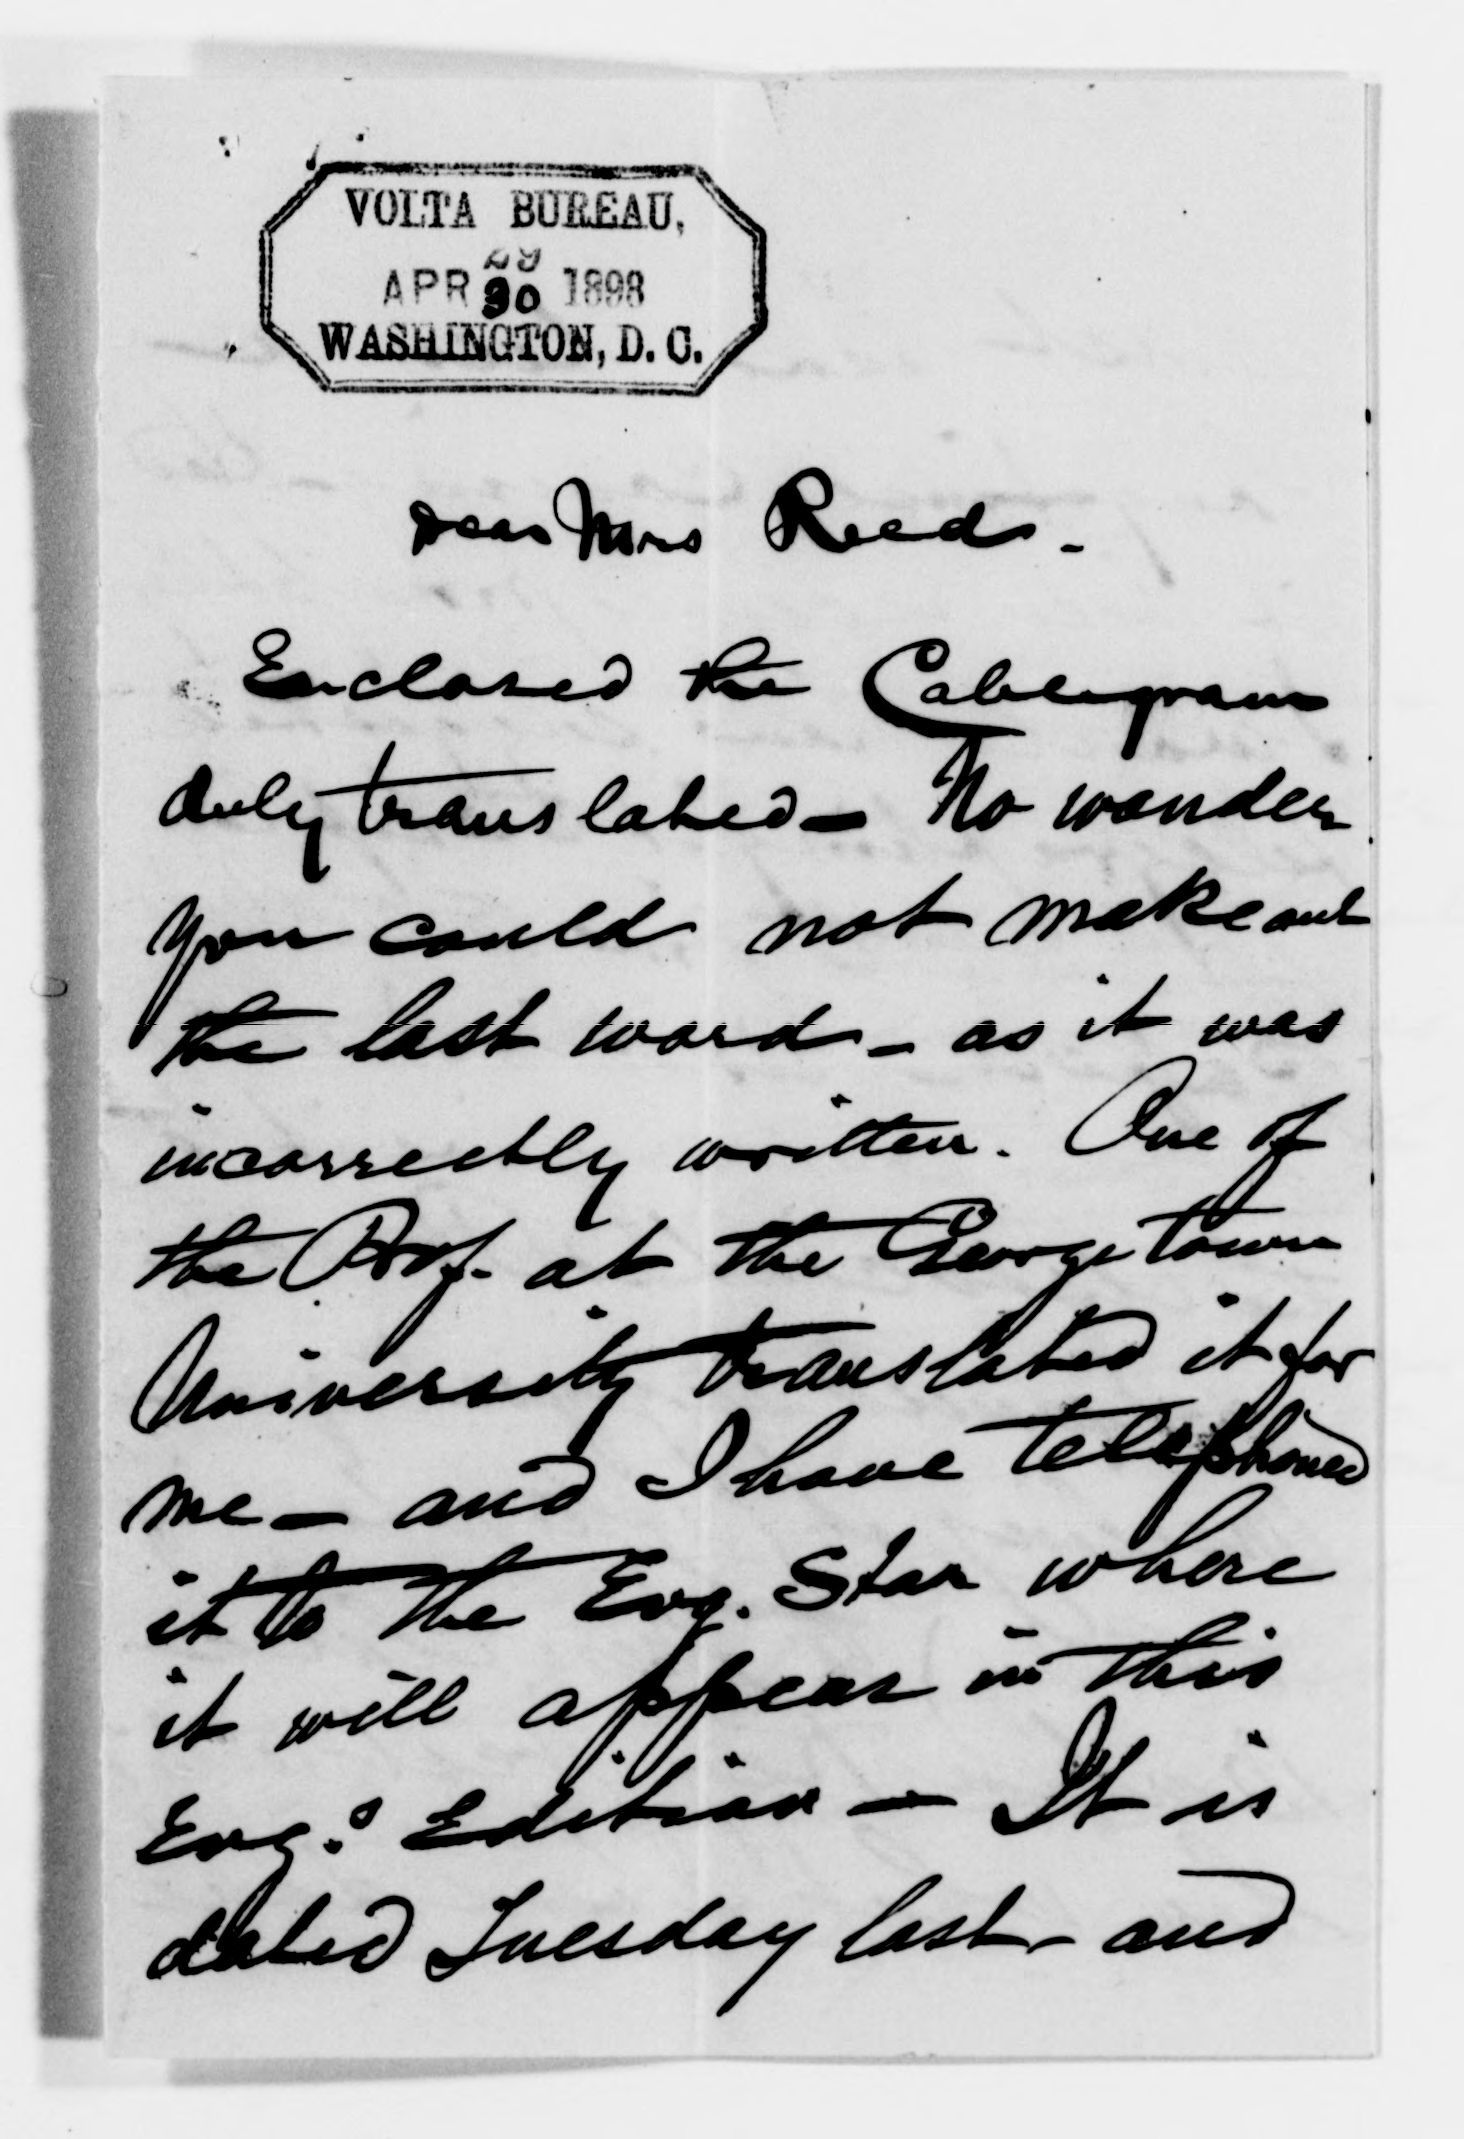 VOLTA BUREAU,
APR 30 1898
WASHINGTON, D. C.
Dear Mrs Reed.
Enclosed the Cablegram
duly translated — No wonder
you could not make out
the last word — as it was
incorrectly written. One of
the Prof. at the Georgetown
University translated it for
me — and I have telephoned
it to the Evg. Star where
it will appear in this
Evg.s Edition — It is
dated Tuesday last — and